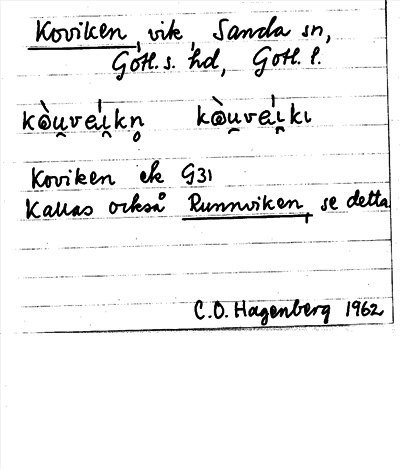 Koviken, vik, Sanda sn,
Gotl. s. hd, Gotl. l.
Koviken ek G31
Kallas också Runnviken se detta
C.O. Hagenberg 1962